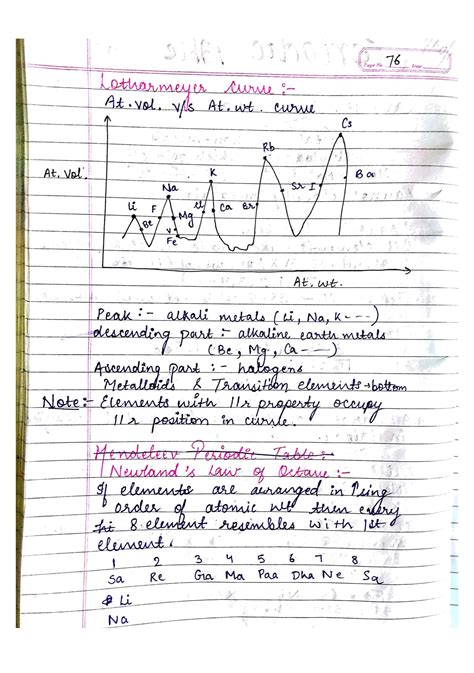 Page No. 76
Lotharmeyer Curve :-
At. vol. v/s At. wt. curve
Cs
Rb
At. Vol.
K
Ba
Na
Sr
I
Li
F
cl
Ca
Br
Be
Mg
V
Fe
At. wt.
Peak :- alkali metals (Li, Na, K ---)
descending part :- alkaline earth metals
(Be, Mg, Ca ---)
Ascending part :- halogens
Metalloids & Transition elements → bottom
Note:- Elements with llr property occupy
llr position in curve.
Mendeleev Periodic Table :-
Newland's Law of Octave :-
If elements are arranged in ↑sing
order of atomic wt then every
8 element resembles with 1st
element.
1 2 3 4 5 6 7 8
Sa Re Ga Ma Paa Dha Ne Sa
Li
Na